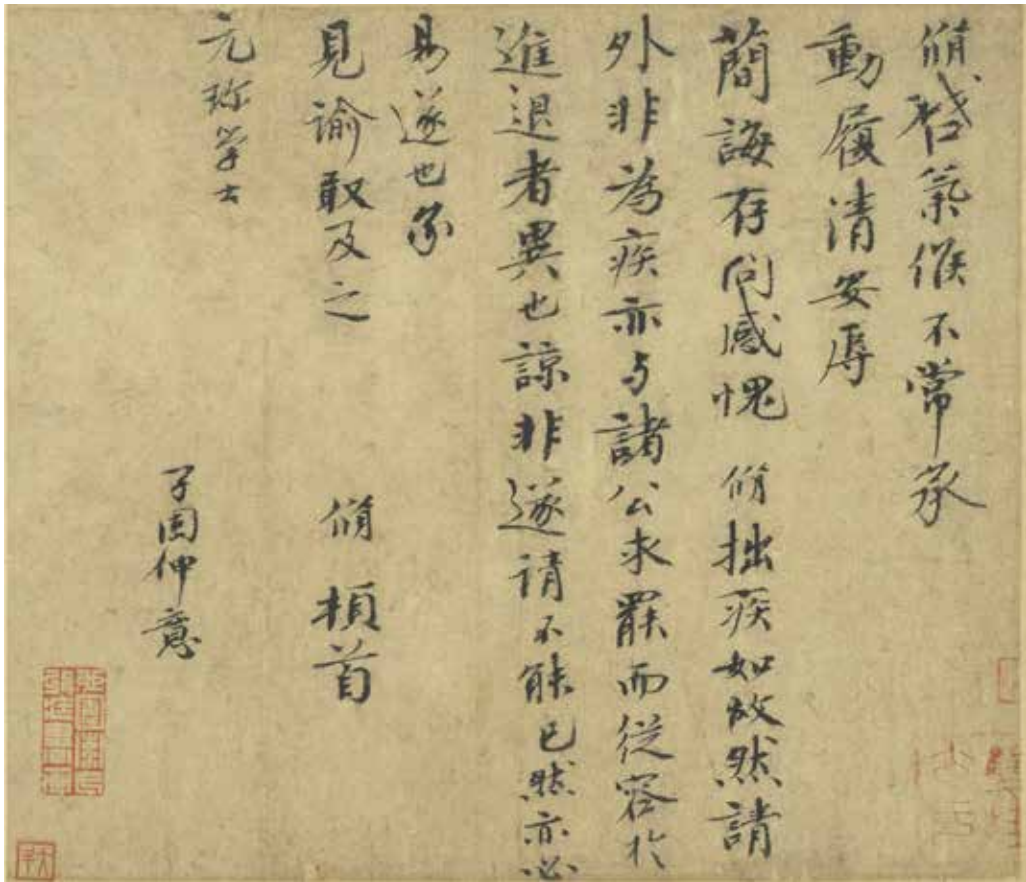 脩啓氣候不常承
動履清安辱
簡誨存問感愧 脩拙疾如故然請
外非為疾亦与諸公求罷而從容於
進退者異也諒非遂請不能已然亦必
易遂也承
見諭敢及之
脩 頓首
元珍学士
子固仲意